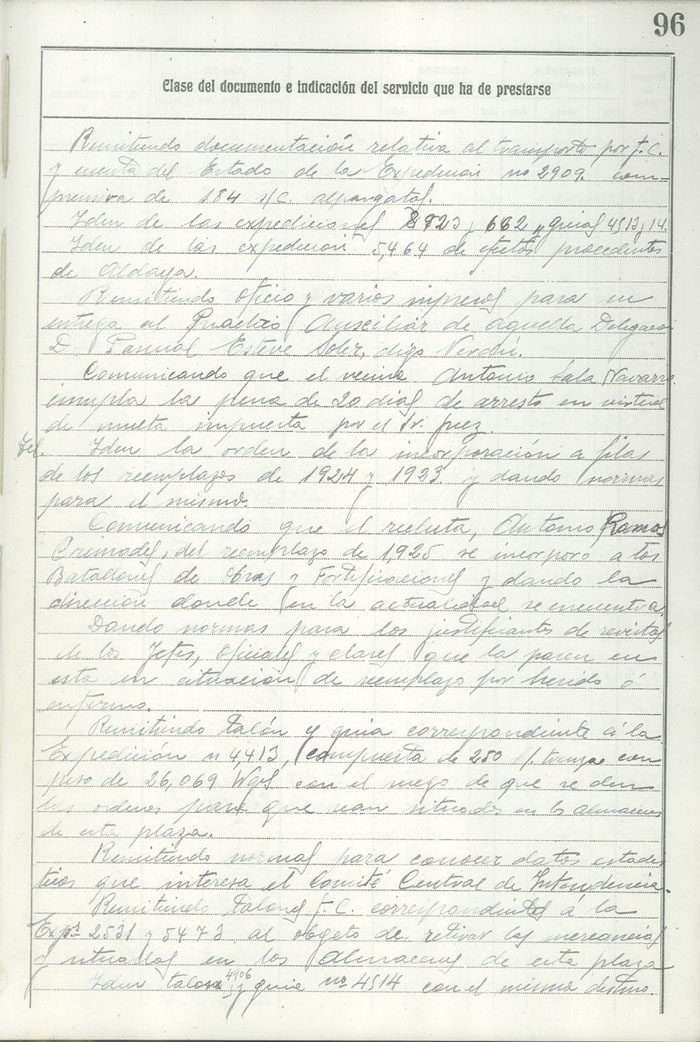 96
Clase del documento e indicación del servicio que ha de prestarse
Remitiendo documentación relativa al transporte por f.C.
y cuenta del Estado de la Expedición nº 2909. com-
prensiva de 184 s/c. alpargatas.
Iden de las expediciones 8823, 662 guias 4513 y 14.
Iden de las expedición 5,464 de efectos procedentes
de Aldaya.
Remitiendo oficio y varios impresos para su
entrega al Practico Auxiliar de aquella Delegacion
D. Pascual Esteve Soler, digo Verdú.
Comunicando que el vecino Antonio Sala Navarro
cumpla las pena de 20 dias de arresto en virtud
de multa impuesta por el Sr. juez.
Tel. Iden la orden de la incorporación a filas
de los reemplazos de 1924 y 1923 y dando normas
para el mismo.
Comunicando que el recluta, Antonio Ramos
del reemplazo de 1,925 se incorporo a los
Batallones de Obras y Fortificaciones y dando la
dirección donde en la actualidad se encuentra.
Dando normas para los justificantes de revistas
de los Jefes, oficiales y clases que la pasen en
esta en situación de reemplazo por herido ó
enfermo.
Remitiendo talón y guia correspondiente á la
Expedición n 4413, compuesta de 250 con
peso de 26,069 Kgs. con el ruego de que se den
las ordenes para que sean situados en los almacenes
de esta plaza.
Remitiendo normas para conocer datos estadis
ticos que interesa el Comité Central de Intendencia.
Remitiendo talones f.C. correspondientes á la
Expª 2531 y 5473 al objeto de retirar las mercancias
y situadas en los Almacenes de esta plaza
Iden talon 4906 y guia nº 4514 con el mismo destino.